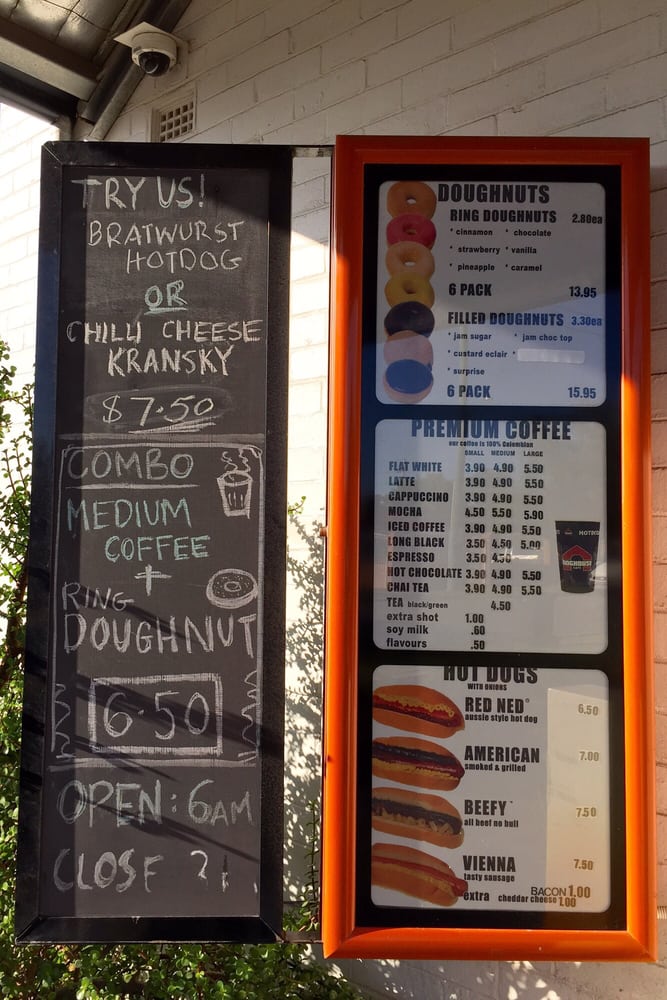 TRY US!
BRATWURST
HOTDOG
OR
CHILLI CHEESE
KRANSKY
$7.50
COMBO
MEDIUM
COFFEE
+
RING
DOUGHNUT
6.50
OPEN: 6AM
CLOSE ?
DOUGHNUTS
RING DOUGHNUTS 2.80ea
* cinnamon * chocolate
* strawberry * vanilla
* pineapple * caramel
6 PACK 13.95
FILLED DOUGHNUTS 3.30ea
* jam sugar * jam choc top
* custard eclair *
* surprise
6 PACK 15.95
PREMIUM COFFEE
our coffee is 100% Colombian
SMALL MEDIUM LARGE
FLAT WHITE 3.90 4.90 5.50
LATTE 3.90 4.90 5.50
CAPPUCCINO 3.90 4.90 5.50
MOCHA 4.50 5.50 5.90
ICED COFFEE 3.90 4.90 5.50
LONG BLACK 3.50 4.50 5.00
ESPRESSO 3.50 4.50
HOT CHOCOLATE 3.90 4.90 5.50
CHAI TEA 3.90 4.90 5.50
TEA black/green 4.50
extra shot 1.00
soy milk .60
flavours .50
HOT DOGS
WITH ONIONS
RED NED 6.50
aussie style hot dog
AMERICAN 7.00
smoked & grilled
BEEFY 7.50
all beef no bull
VIENNA 7.50
tasty sausage
extra BACON 1.00
cheddar cheese 1.00